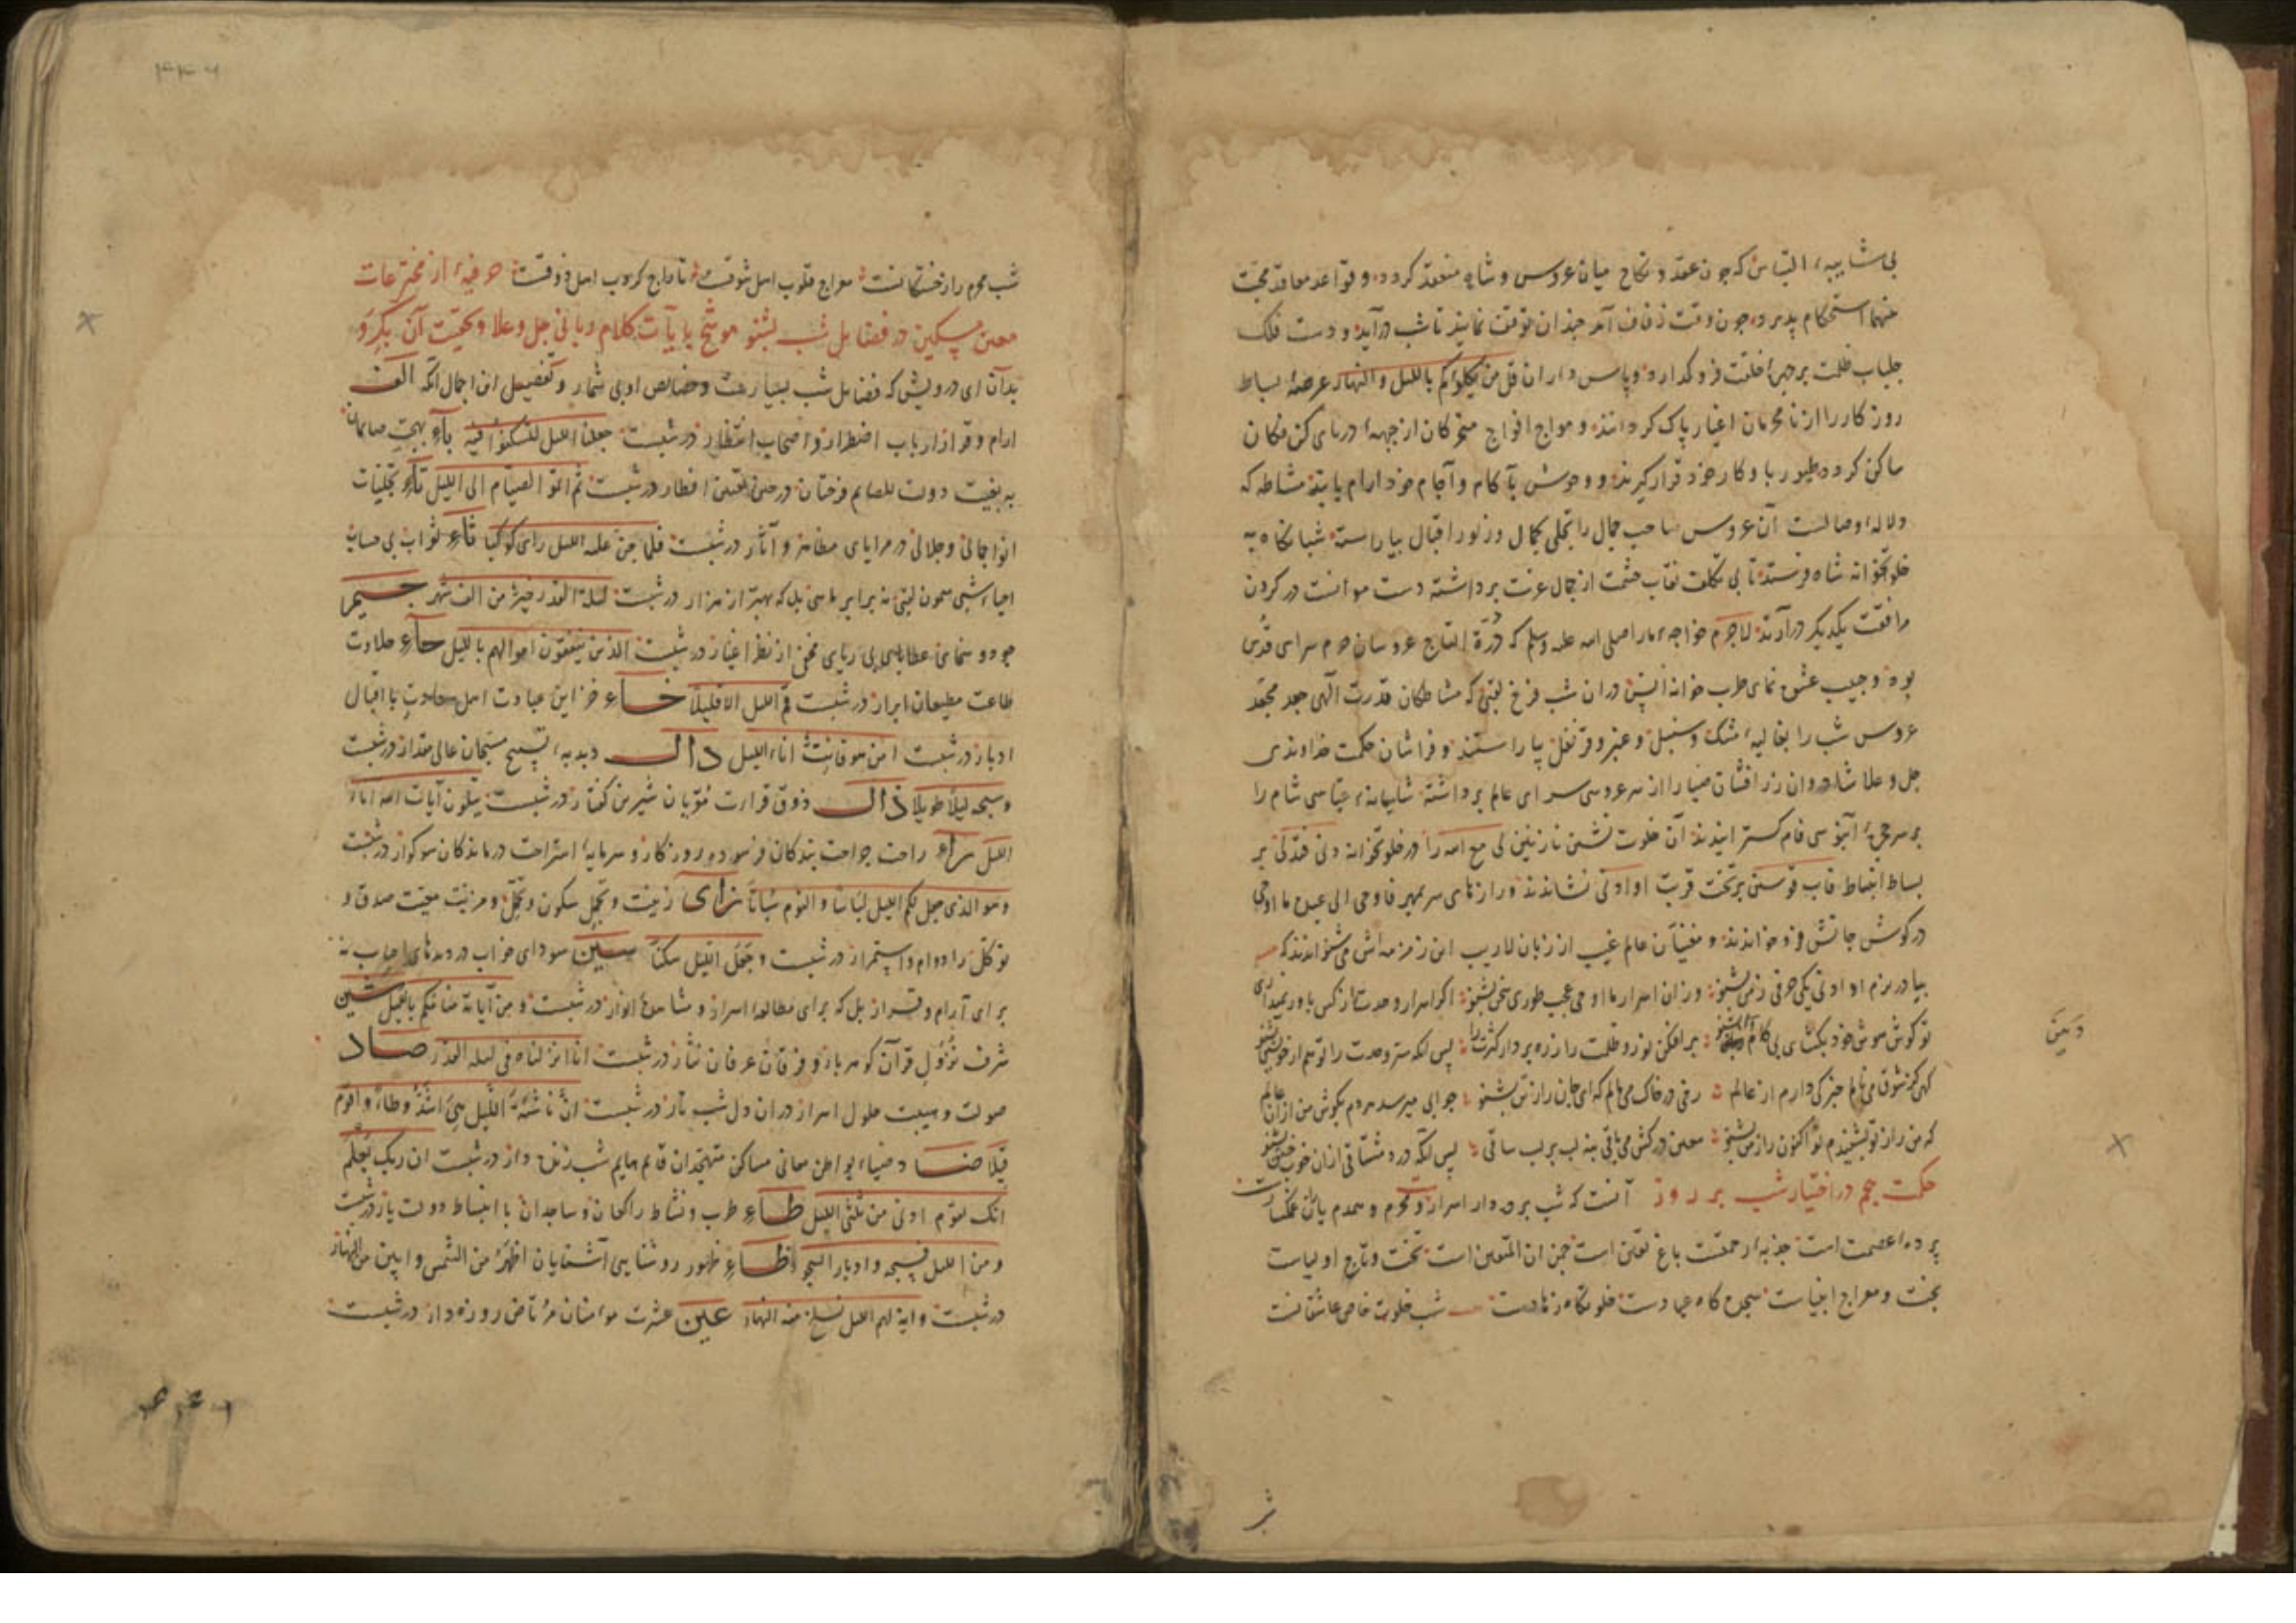 بی شایبهٔ التباس که چون عقد و نکاح میان عروس و شاه منعقد کردد و قواعد معاقد محبت
منهما استحکام پذیرد چون وقت زفاف آمد چندان توقف نمایند تا شب درآید و دست فلک
جلباب ظلمت بر چهره خلقت فرو کذارد و پاس داران قل من یکلؤکم باللیل و النهار عرصهٔ بساط
روزکار را از نامحرمان اغیار پاک کردانند و مواج افواج متحرکان از جبههٔ دریای کن فکان
ساکن کردد طیور باوکار خود قرار کیرند و وحوش بآکام و آجام خود ارام یابند مشاطه که
دلاله وصالست آن عروس صاحب جمال را بحلی کمال و زیور اقبال بیاراسته شبانکاه به
خلوتخانه شاه فرستد تا بی تکلف نقاب حشمت از جمال عزت برداشته دست موانست در کردن
مرافقت یکدیکر درآرند لاجرم خواجهٔ مارا صلی الله علیه وسلم که درة التاج عروسان حرم سرای قدس
بود و حبیب عشق نمای طرب خانه انس دران شب فرخ لقی که مشاطکان قدرت الهی جعد مجعد
عروس شب را بغالیهٔ مشک و سنبل و عنبر و قرنفل بیاراستند و فراشان حکمت خداوندی
جل و علا شادروان زر افشان ضیا را از سر عروسی سرای عالم برداشته شامیانهٔ عباسی شام را
بر سر حجرهٔ آبنوسی فام کسترانیدند آن خلوت نشین نازنین لی مع الله را در خلوتخانه دنی فتدلی بر
بساط انبساط قاب قوسین بر تخت قربت او ادنی نشاندند و رازهای سر بمهر فاوحی الی عبده ما اوحی
در کوش جانش فرو خواندند و مغنیان عالم غیب از زبان لاریب این زمزمه اش می شنواندند که
بیا در بزم او ادنی یکی حرفی زمن بشنو وزان اسرار ما اوحی عجب طوری سخن بشنو اکر اسرار وحدت از کس باور نمیداری
تو کوش هوش خود بکشای بی کام بشنو برافکن نور و ظلمت را زره بردار کثرت را پس انکه سر وحدت را تو هم از خویشتن بشنو
کهی کز شوق می نالم خبر کی دارم از عالم رخی در خاک می مالم که ای جان راز من بشنو جوابی میرسد هردم بکوش من ازان عالم
که من راز تو بشنیدم تو اکنون راز من بشنو معین درکش می باقی بنه لب بر لب ساقی پس آنکه درد مشتاقی ازان خوب ختن بشنو
دَیْنَ
حکمت پنجم در اختیار شب بر روز آنست که شب پرده دار اسرارست و محرم و همدم یاران غمکسارست
پردهٔ عصمت است جذبهٔ رحمتست باغ یقین است چمن ان المتقین است تخت و تاج اولیاست
بخت و معراج انبیاست سجده کاه عبادست خلوتکاه زهادست شب خلوت خاص عاشقانست
شب محرم راز خستکانست معراج قلوب اهل شوقست تاراج کروب اهل ذوقست حرفیهٔ از مخترعات
معین مسکین در فضایل شب بشنو موشح بآیات کلام ربانی جل و علا و کیفیت آن بکر و
بدان ای درویش که فضایل شب بسیارست و خصایص او بی شمار و تفصیل این اجمال آنکه الف
ارام و قرار ارباب اضطرار و اصحاب انتظار در شبست جعل اللیل لتسکنوا فیه باء بهجت صایمان
به بغیت دولت للصایم فرحتان در حین یقین افطار در شبست ثم اتموا الصیام الی اللیل تاء تجلیات
انوار جمالی و جلالی در مرایای مظاهر و آثار در شبست فلما جن علیه اللیل رای کوکبا ثاء ثواب بی حساب
احیاء شبی میمون لقی نه برابر ماهی بل که بهتر از هزار در شبست لیلة القدر خیر من الف شهر جیم
جود و سخای عطابا سی بی ریای مخفی از نظر اغیار در شبست الذین ینفقون اموالهم باللیل حاء حلاوت
طاعت مطیعان ابرار در شبست قم اللیل الا قلیلا خاء خزاین عبادت اهل سعادت با اقبال
ادبار در شبست امن هو قانت اناء اللیل دال دبدبهٔ تسبیح مسبحان عالی مقدار در شبست
و سبحه لیلا طویلا ذال ذوق قراءت مقریان شیرین کفتار در شبست یتلون آیات الله اناء
اللیل راء راحت جراحت بندکان فرسوده روزکار و سرمایهٔ استراحت درماندکان سوکوار در شبست
وهو الذی جعل لکم اللیل لباسا و النوم سباتا زای زینت و تجمل سکون و تحمل و مزیت معیت صدق و
توکل را دوام و استمرار در شبست و جعل اللیل سکنا سین سودای خواب در دیدهای احباب نه
برای آرام و قرار بل که برای مطالعهٔ اسرار و مشاهده انوار در شبست و من آیاته منامکم باللیل شین
شرف نزول قرآن کوهربار و فرقان عرفان نثار در شبست انا انزلناه فی لیلة القدر صاد
صولت و هیبت حلول اسرار دران دل شب تار در شبست ان ناشئة اللیل هی اشد وطأ و اقوم
قیلا ضاد ضیاء بواطن معانی مساکن متهجدان قایم هایم شب زنده دار در شبست ان ربک یعلم
انک تقوم ادنی من ثلثی اللیل طاء طرب و نشاط راکعان و ساجدان با انبساط دولت یار در شبست
ومن اللیل فسبحه و ادبار السجود ظاء ظهور روشنایی آشنایان اظهر من الشمس و ابین من النهار
در شبست و ایة لهم اللیل نسلخ منه النهار عین عشرت مؤمنان مرتاض روزه دار در شبست